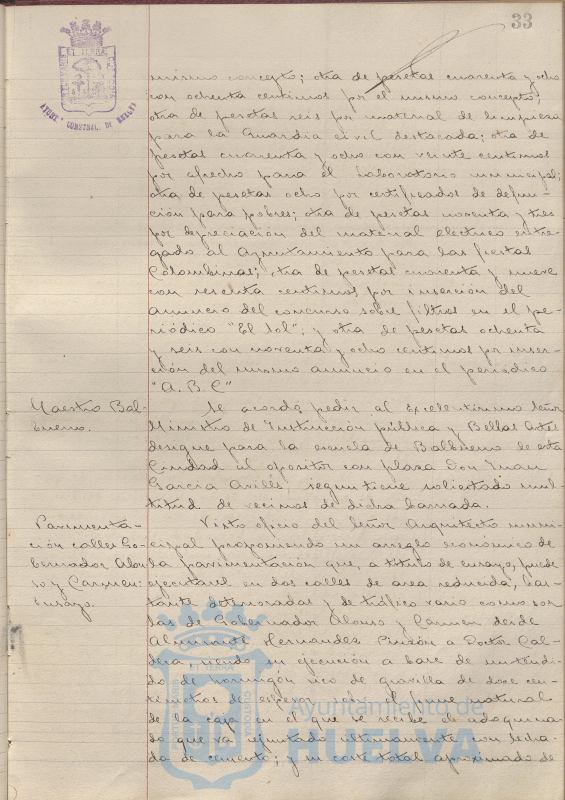 33
AYUNT. CONSTNAL. DE HUELVA
mismo concepto; otra de pesetas cuarenta y ocho
con ochenta centimos por el mismo concepto;
otra de pesetas seis por material de limpieza
para la Guardia civil destacada; otra de
pesetas cuarenta y ocho con veinte centimos
por afrecho para el Laboratorio municipal;
otra de pesetas ocho por certificados de defun-
ción para pobres; otra de pesetas noventa y tres
por depreciación del material electrico entre-
gado al Ayuntamiento para las fiestas
Colombinas; otra de pesetas cuarenta y nueve
con sesenta centimos por inserción del
anuncio del concurso sobre filtros en el pe-
riódico "El Sol"; y otra de pesetas ochenta
y seis con noventa y ocho centimos por inser-
ción del mismo anuncio en el periodico
"A.B.C"
Maestro Bal-
bueno.
Se acordó pedir al Excelentisimo Señor
Ministro de Instrucción pública y Bellas Artes
designe para la escuela de Balbueno de esta
Ciudad al opositor con plaza Don Juan
Garcia Avilés, segun tiene solicitado mul-
titud de vecinos de dicha barriada.
Pavimenta-
ción calles Go-
bernador Alon-
so y Carmen:
Ensayo.
Visto oficio del Señor Arquitecto muni-
cipal proponiendo un arreglo económico de
la pavimentación que, a titulo de ensayo, puede
ejecutarse en dos calles de area reducida, bas-
tante deterioradas y de tráfico vario como son
las de Gobernador Alonso y Carmen desde
Almirante Hernandez Pinzón a Doctor Cal-
dera, siendo su ejecución a base de un tendi-
do de hormigón rico de gravilla de doce cen-
timetros de espesor sobre el firme natural
de la caja en el que se recibe el adoquina-
do que va rejuntado ultimamente con lecha-
da de cemento; y su coste total aproximado de
Ayuntamiento de
HUELVA